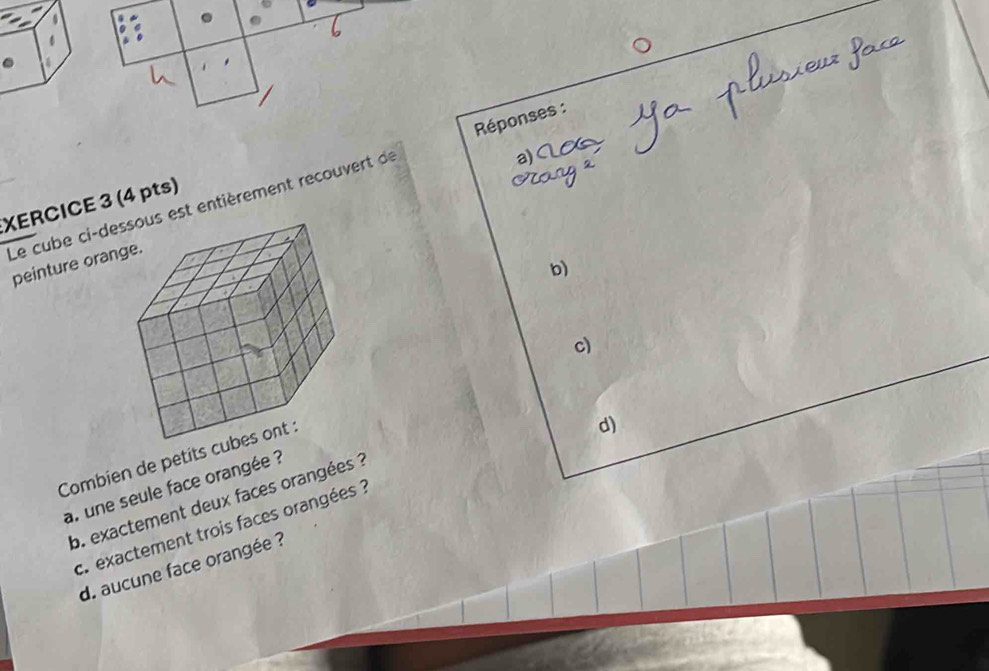 h
6
/
O
EXERCICE 3 (4 pts)
Le cube ci-dessous est entièrement recouvert de
peinture orange.
Combien de petits cubes ont :
a. une seule face orangée ?
b. exactement deux faces orangées ?
c. exactement trois faces orangées ?
d. aucune face orangée ?
Réponses :
a) ya plusieur face
orangé
b)
c)
d)